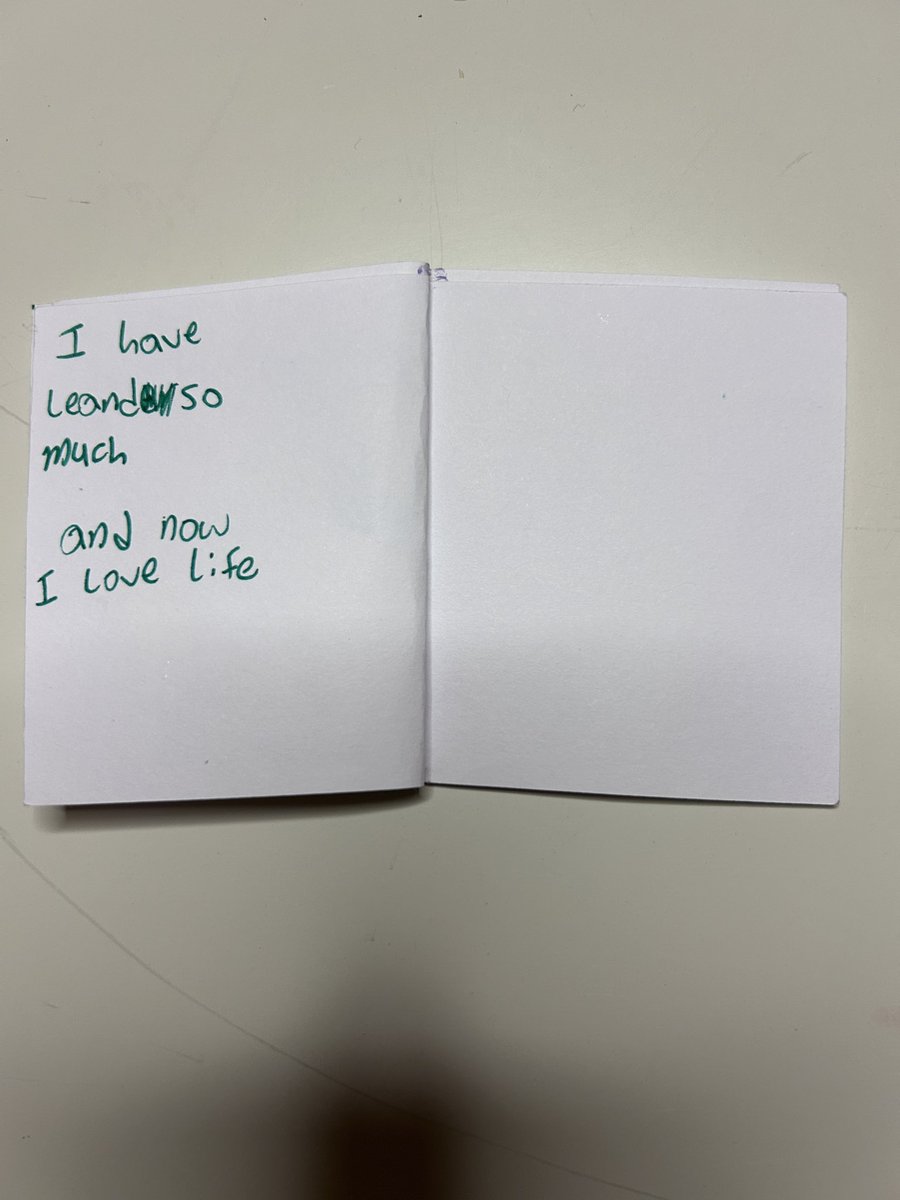 I have
Leand so
much
and now
I Love life